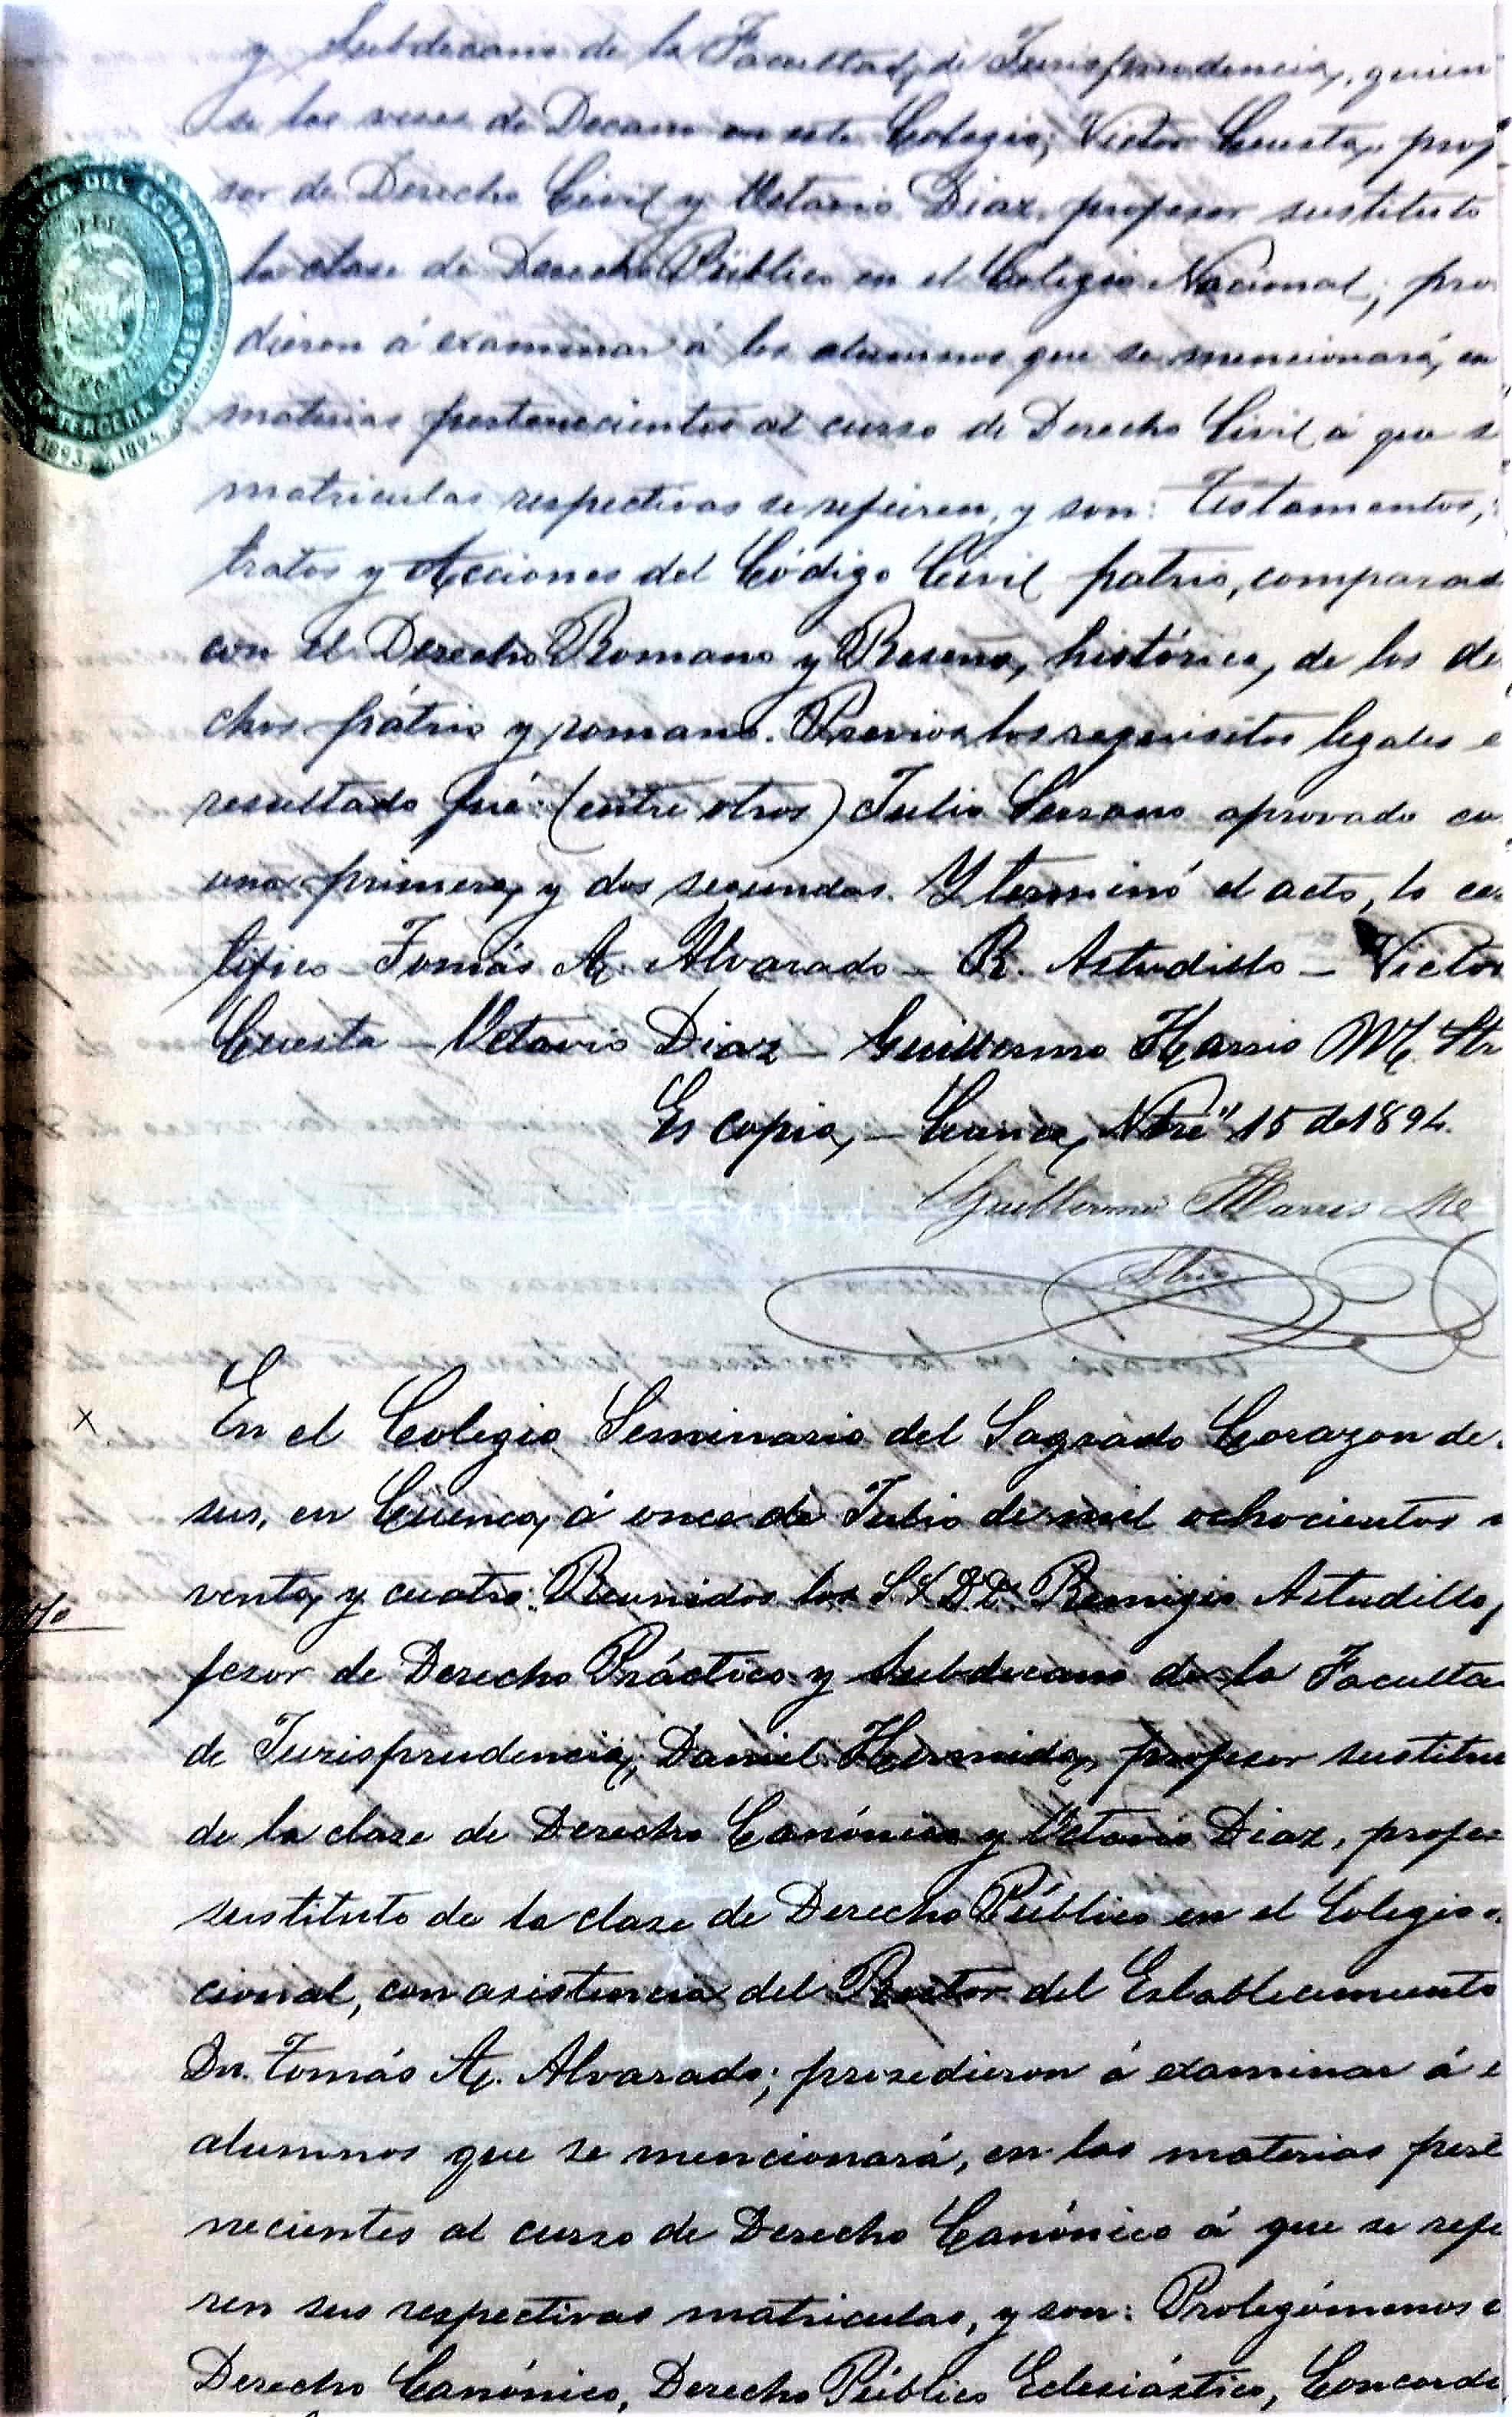 y Subdecano de la Facultad de Jurisprudencia, quien
se las veces de Decano en este Colegio; Victor Cuesta, prof
sor de Derecho Civil y Octavio Diaz, profesor sustituto
la clase de Derecho Público en el Colegio Nacional; pro
dieron á examinar á los alumnos que se mencionará, en
materias pertenecientes al curso de Derecho Civil á que s
matriculas respectivas se refieren, y son: Testamentos,
tratos y Acciones del Código Civil patrio, comparad
con el Derecho Romano y Reseña histórica, de los de
chos pátrio y romano. Previos los requisitos legales e
resultado fué: (entre otros) Julio Serrano aprovado co
una primera, y dos segundas. Y terminó el acto, lo cer
tifico - Tomás A. Alvarado - R. Astudillo - Victor
Cuesta - Octavio Diaz - Guillermo Harris M. Str
Es copia, - Cuenca, Nbre 15 de 1894.
Guillermo Harris M
Strio
En el Colegio Seminario del Sagrado Corazon de
sus, en Cuenca, á once de Julio de mil ochocientos n
venta, y cuatro: Reunidos los S.S. D.D. Remigio Astudillo,
fesor de Derecho Práctico y Subdecano de la Faculta
de Jurisprudencia; Daniel Hermida, profesor sustitu
de la clase de Derecho Canónico y Octavio Diaz, profe
sustituto de la clase de Derecho Público en el Colegio
cional, con asistencia del Rector del Establecimiento
Dn. Tomás A. Alvarado; prosedieron á examinar á
alumnos que se mencionará, en las materias perte
necientes al curso de Derecho Canónico á que se refe
ren sus respectivas matriculas, y son: Prolegómenos
Derecho Canónico, Derecho Público Eclesiástico, Concorda